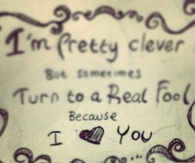 I'm Pretty clever
But sometimes
Turn to a Real Fool
Because
I ❤ You